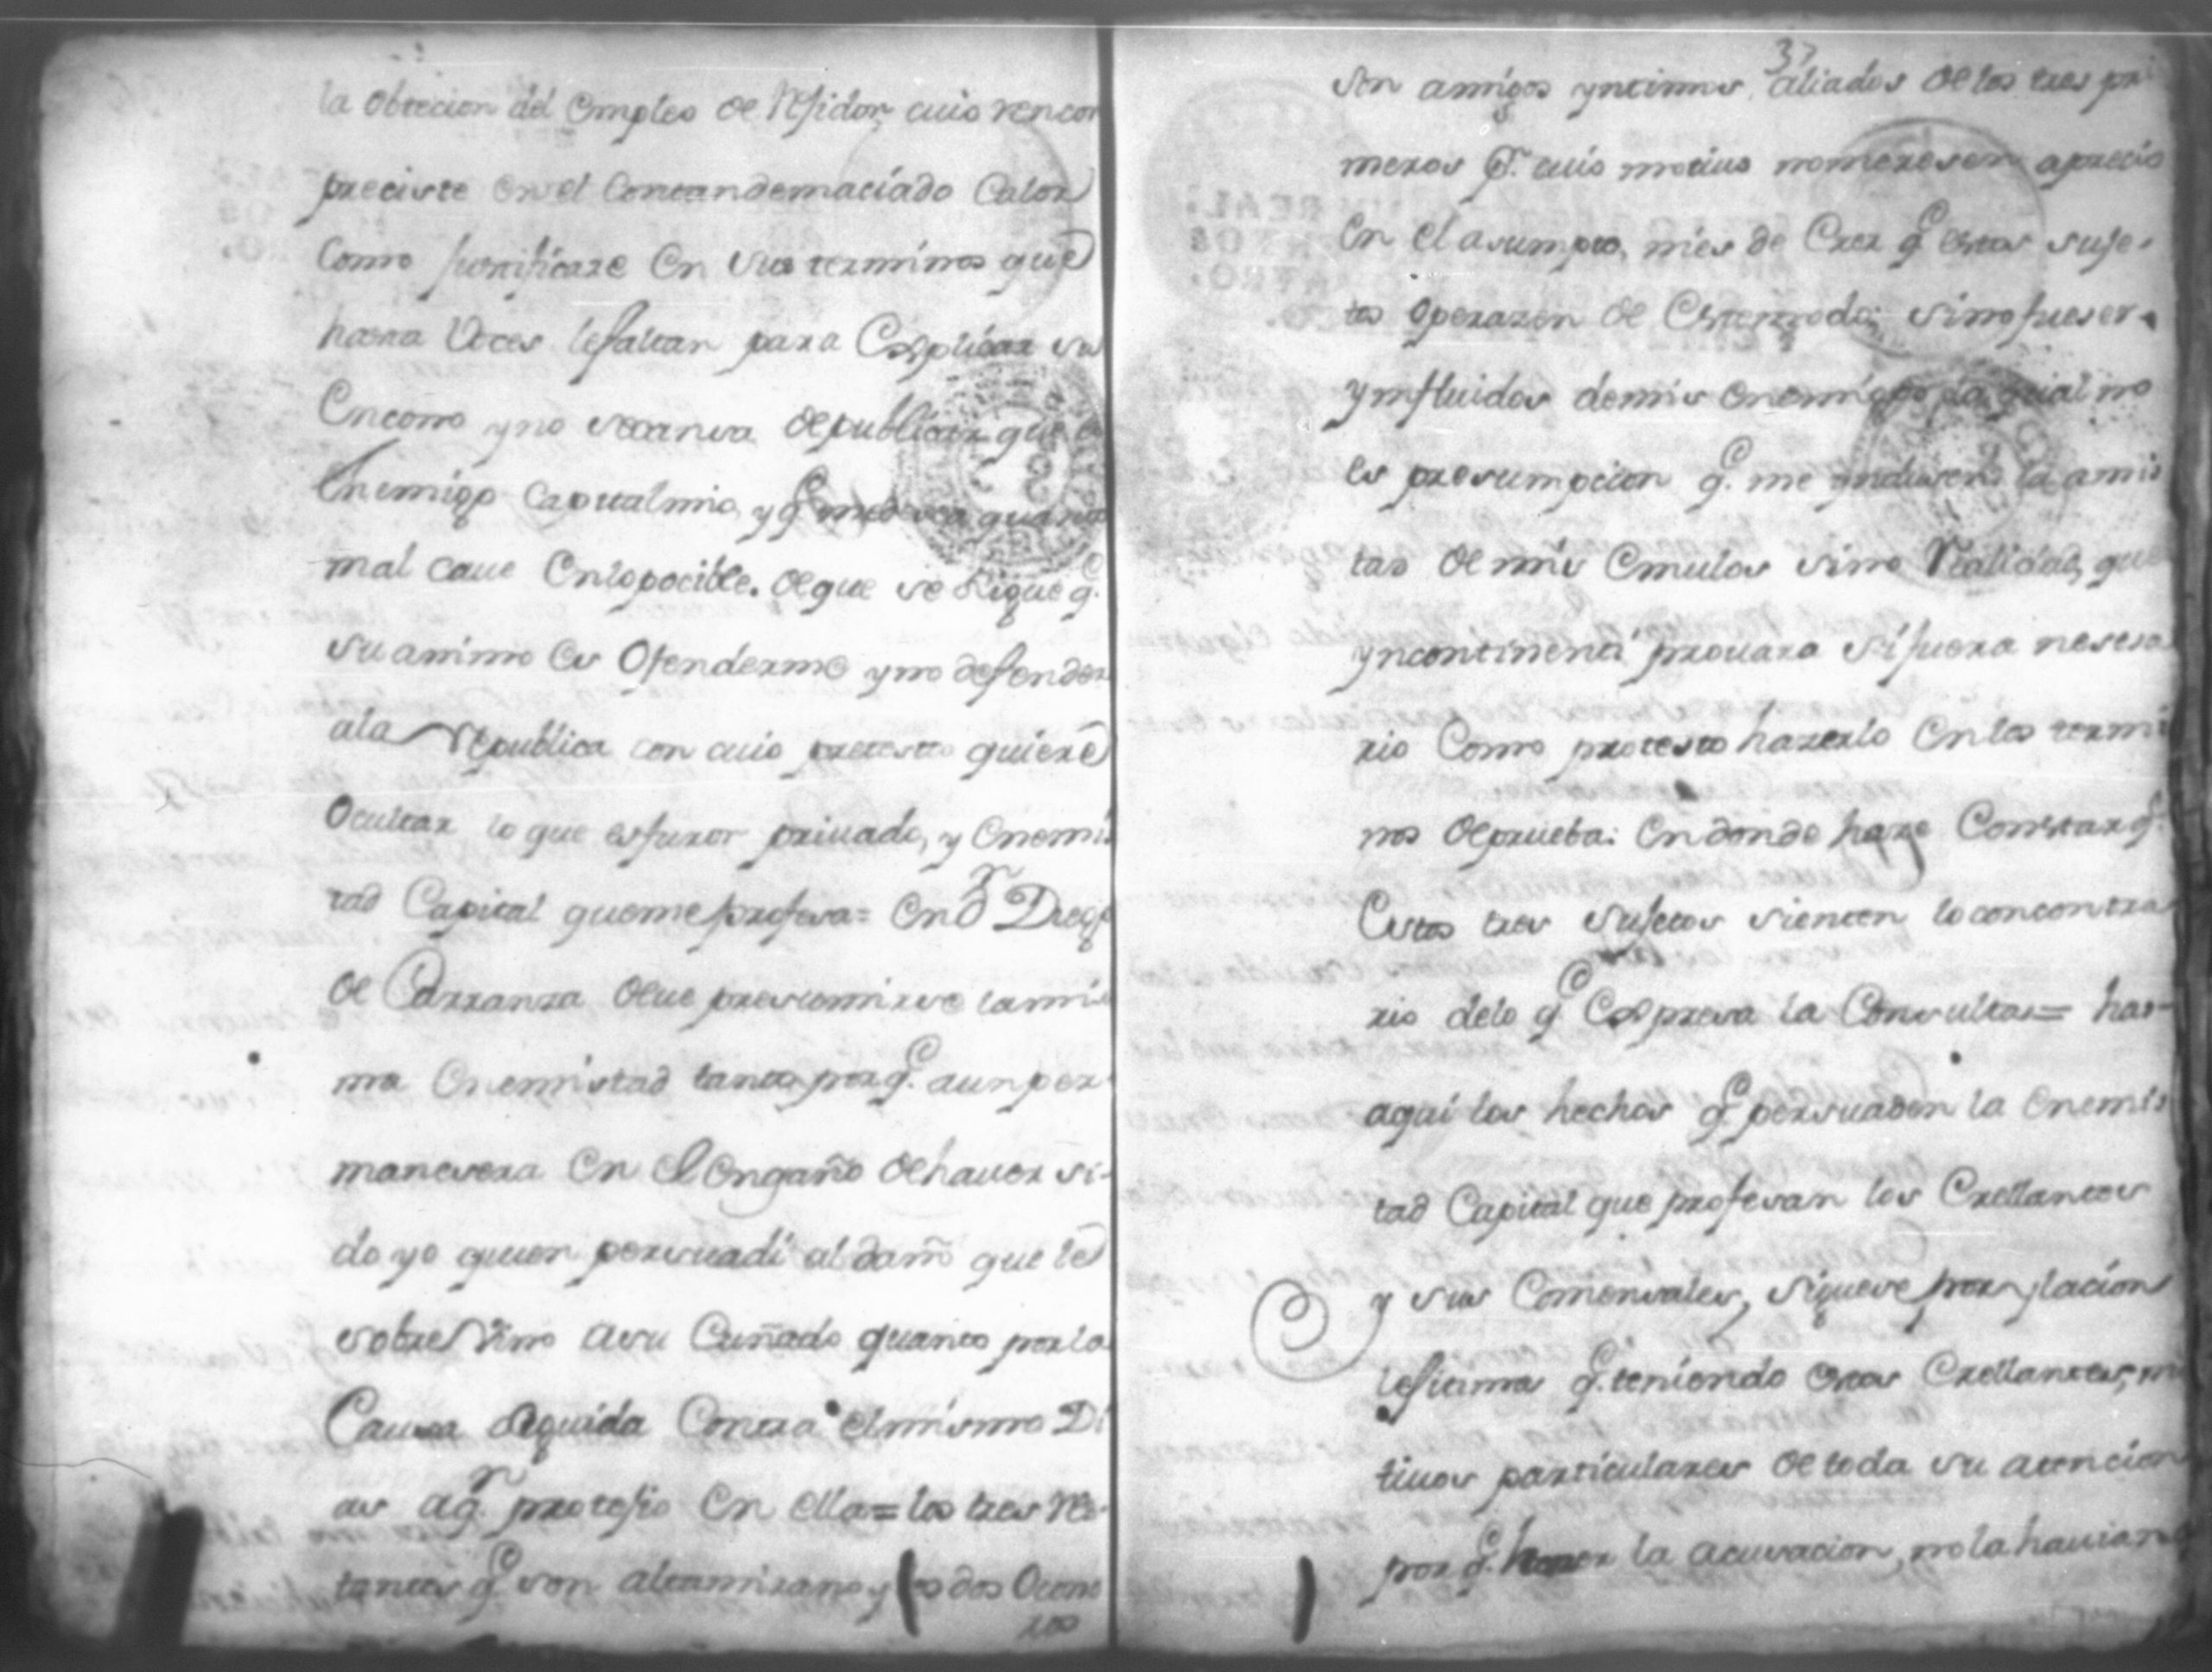 la obtecion del Empleo de Rexidor, cuio rencor
preciste en el con tan demaciado Calor
Como justificare En sus terminos que
hasta Voces le faltan para Explicar su
Encono y no se cansa de publicar que es
Enemigo Capital mio, y q. me quanto
mal cave En lo pocible. de que se sigue q.
su animo es Ofenderme y no defender
a la Republica con cuio pretesto quiere
Ocultar lo que es furor privado, y Enemis
tad Capital que me profesa= En dn Diego
de Carranza deve presumirse la mis
ma Enemistad tanto por q. aun per
manesera En el Engaño de haver si-
do yo quien persuadi al daño que le
sobre Vino a su Cuñado quanto por la
Causa seguida Contra el mismo Di
as a qn protejio En ella= los tres Res
tantes q. son altamirano y los dos Ocam
100
37
son amigos yntimos, aliados de los tres pri
meros P. cuio motivo no meresen aprecio
En el asumpto, ni es de Crer q. estos suje-
tos Operaran de Este modo; si no fuesen
ynfluidos de mis enemigos la qual no
es presumpcion q. me ynduseno la amis
tad de mis Emulos sino Realidad, que
yncontinenti provara si fuera nesesa
rio Como protesto hazerlo En los termi
nos de prueba: En donde hare Constar q.
Estos tres sujetos sienten lo con contra
rio de lo q. Expresa la Consulta= has-
aqui los hechos q. persuaden la Enemis
tad Capital que profesan los Crellantes
y sus Comensales, siguese por ylacion
lejitima q. teniendo estos Crellantes, mo
tivos particulares de toda su atencion
por q. hazer la acusacion, no la havian